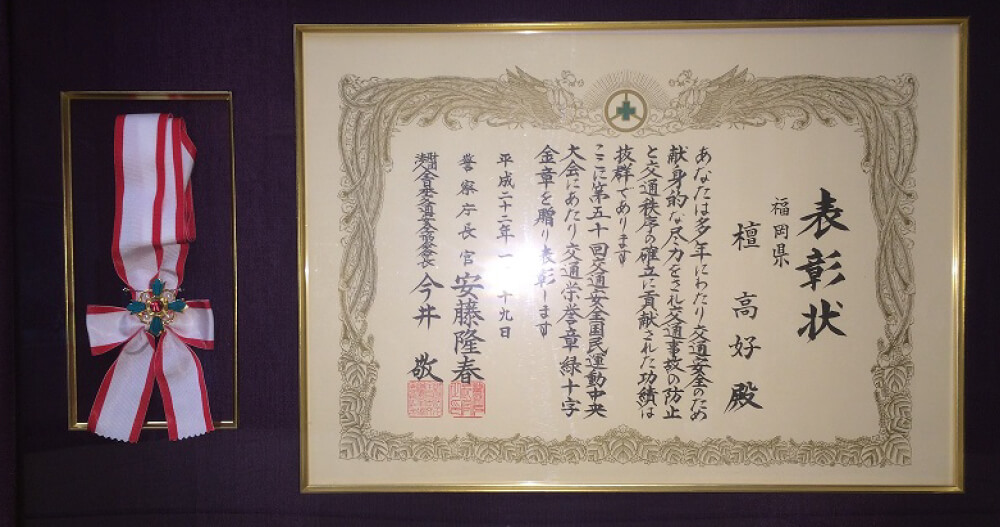 表彰状
福岡県
檀 高好 殿
あなたは多年にわたり交通安全のため
献身的な尽力をされ交通事故の防止
と交通秩序の確立に貢献された功績は
抜群であります
ここに第五十回交通安全国民運動中央
大会にあたり交通栄誉章緑十字
金章を贈り表彰します
平成二十二年一 十九日
警察庁長官 安藤隆春
財団法人全日本交通安全協会会長 今井 敬